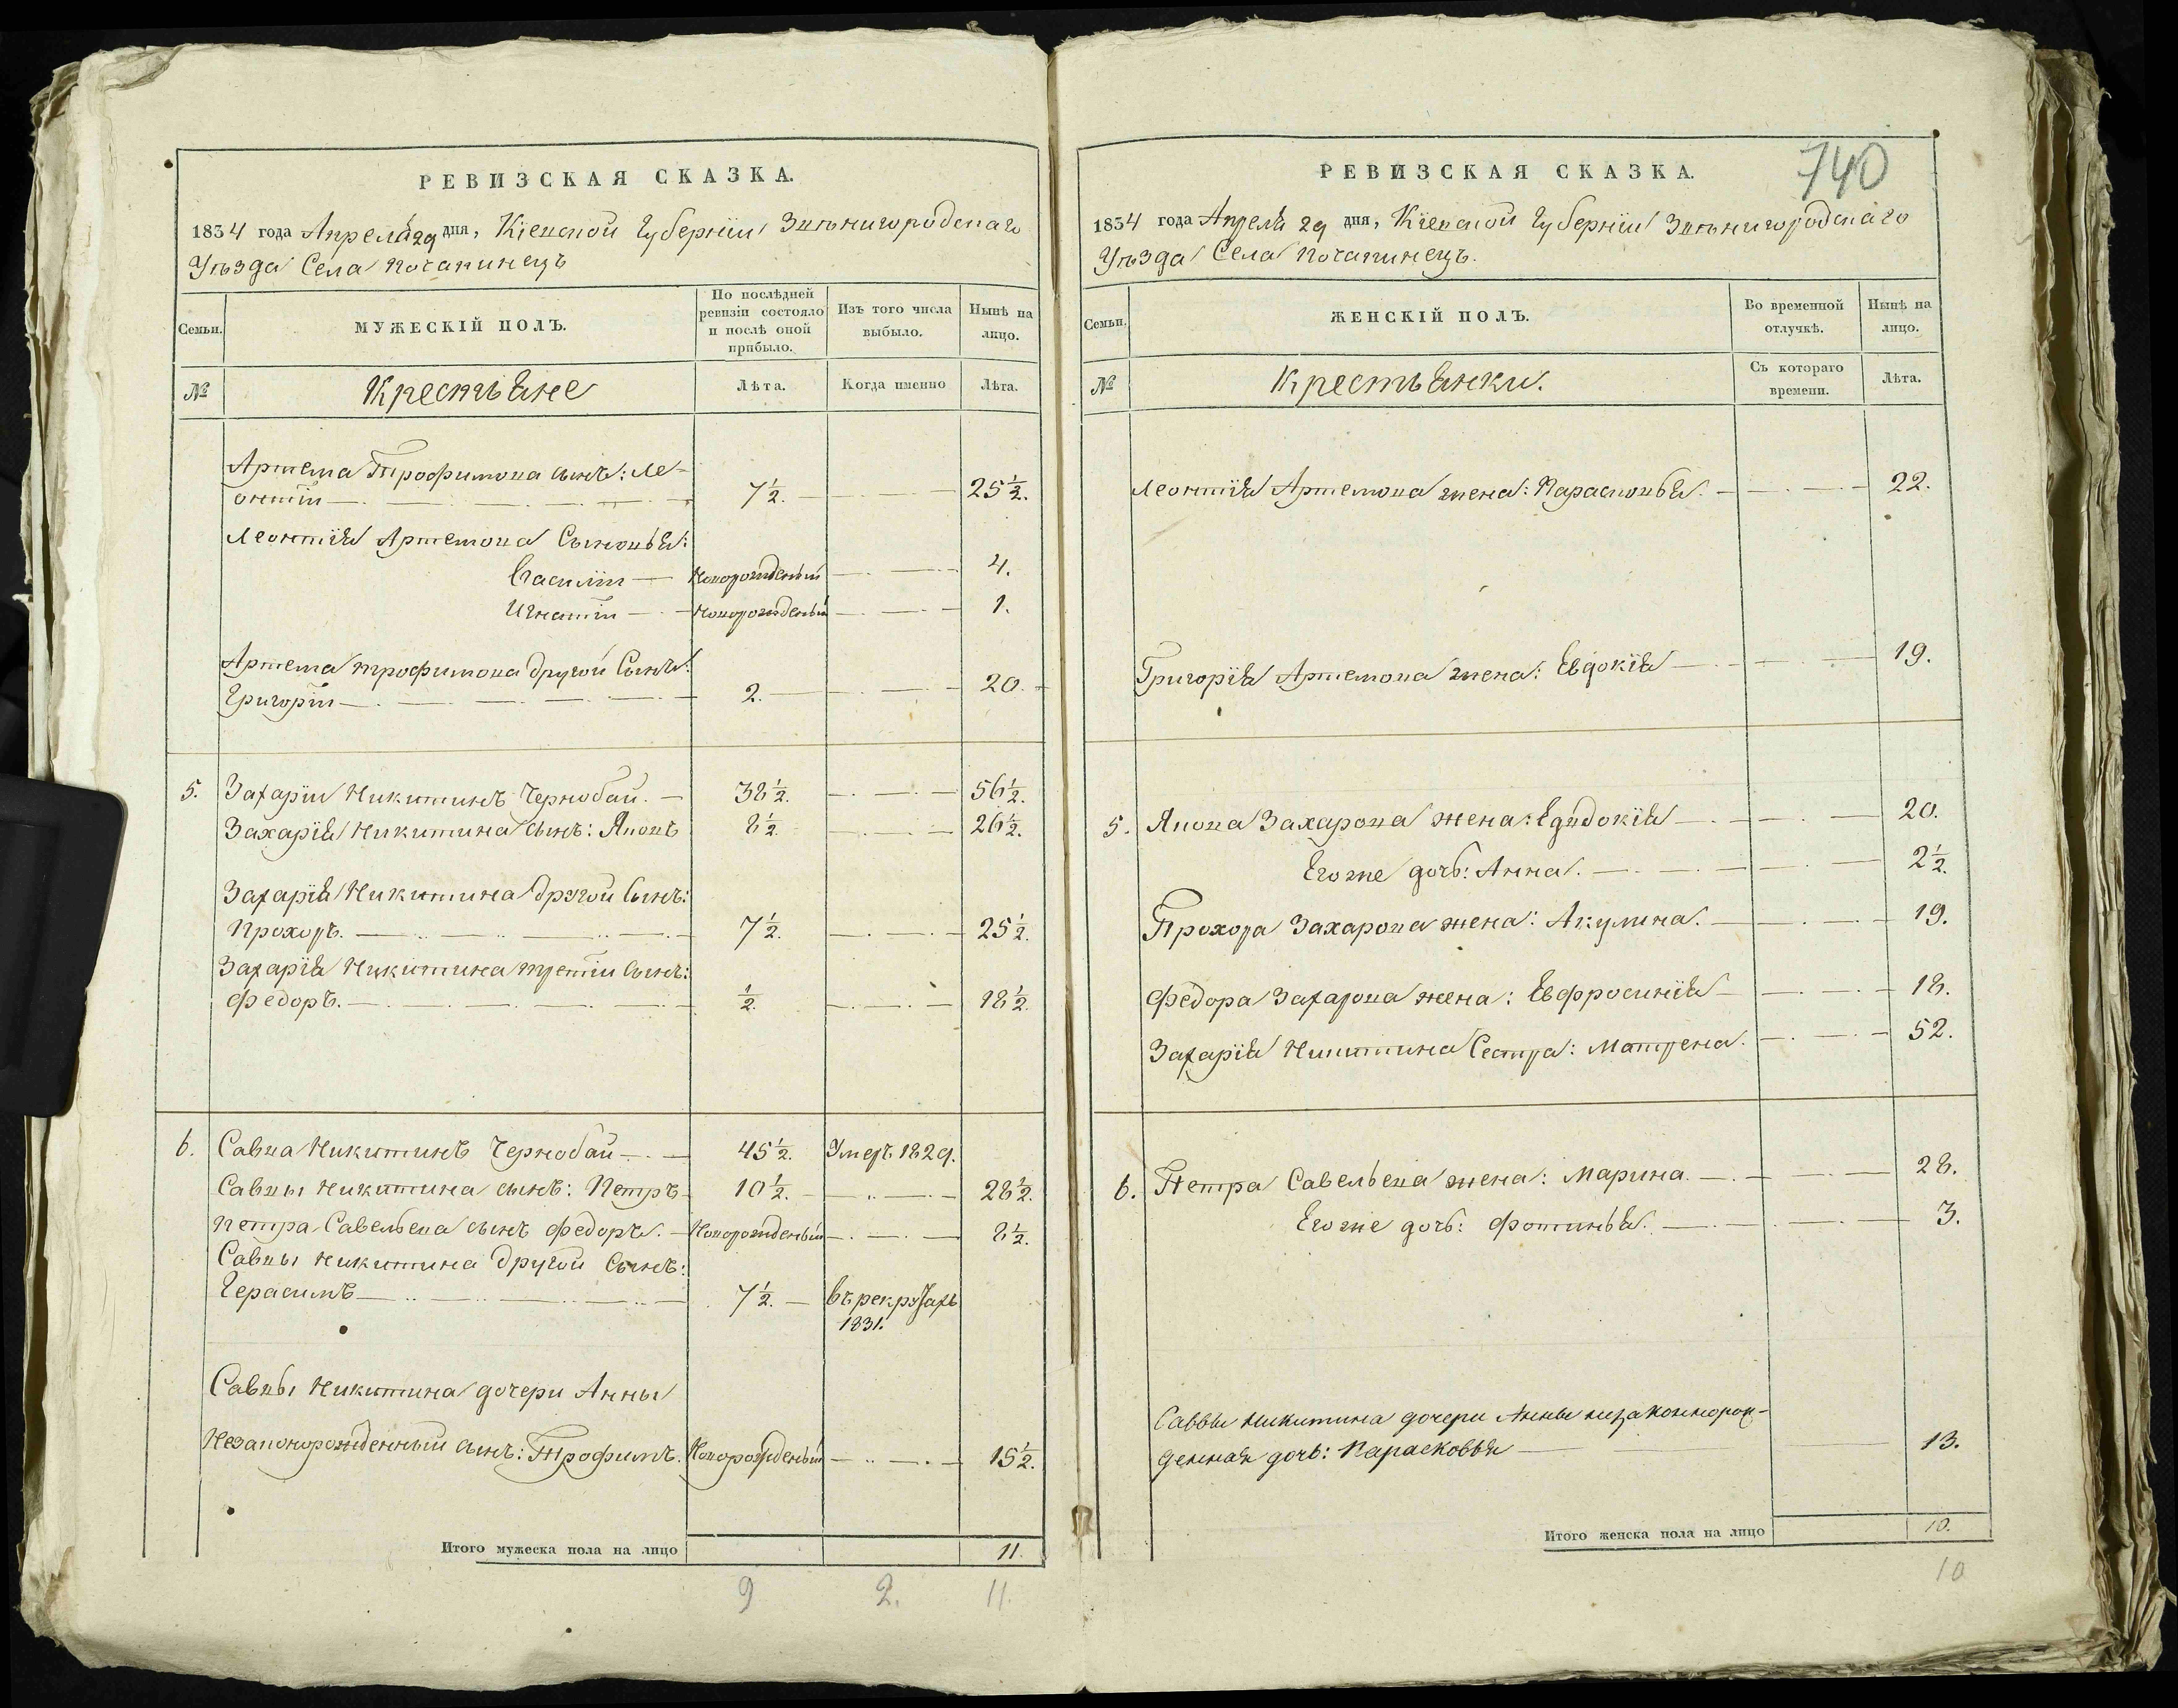 РЕВИЗСКАЯ СКАЗКА.
1834 года Апреля 29 дня, Кіевской Губерніи Звѣнигородскаго
Уѣзда Села Почапинецъ
Семьи.
МУЖЕСКІЙ ПОЛЪ.
По послѣдней
ревизіи состояло
и послѣ оной
прибыло.
Изъ того числа
выбыло.
Нынѣ на
лицо.
№
Крестьяне
Лѣта.
Когда именно
Лѣта.
Артема Трофимова сынъ: Ле-
онтій 7½. 25½.
Леонтія Артемова Сыновья:
Василій Новорожденый 4.
Игнатій Новорожденый 1.
Артема Трофимова другой Сынъ:
Григорій 2. 20.
5. Захарій Никитинъ Чернобай. 38½. 56½.
Захарія Никитина сынъ: Яковъ 8½. 26½.
Захарія Никитина другой Сынъ:
Прохоръ. 7½. 25½.
Захарія Никитина третій Сынъ:
Федоръ. ½. 18½.
6. Савва Никитинъ Чернобай 45½. Умеръ 1829.
Саввы Никитина сынъ: Петръ 10½. 28½.
Петра Савельева сынъ Федоръ. Новорожденый 8½.
Саввы Никитина другой Сынъ:
Герасимъ 7½. въ рекрутахъ
1831.
Саввы Никитина дочери Анны
Незаконорожденный сынъ: Трофимъ. Новорожденый 15½.
Итого мужеска пола на лицо 11.
9 2. 11.
740
РЕВИЗСКАЯ СКАЗКА.
1834 года Апреля 29 дня, Кіевской Губерніи Звѣнигородскаго
Уѣзда Села Почапинецъ.
Семьи.
ЖЕНСКІЙ ПОЛЪ.
Во временной
отлучкѣ.
Нынѣ на
лицо.
№
Крестьянки.
Съ котораго
времени.
Лѣта.
Леонтія Артемова жена: Парасковья. 22.
Григорія Артемова жена: Евдокія 19.
5. Якова Захарова жена: Евдокія 20.
Его же дочь: Анна. 2½.
Прохора Захарова жена: Акулина. 19.
Федора Захарова жена: Евфросинія 18.
Захарія Никитина Сестра: Матрена. 52.
6. Петра Савельева жена: Марина. 28.
Его же дочь: Фотинья. 3.
Саввы Никитина дочери Анны незаконнорож-
денная дочь: Парасковья 13.
Итого женска пола на лицо 10.
10